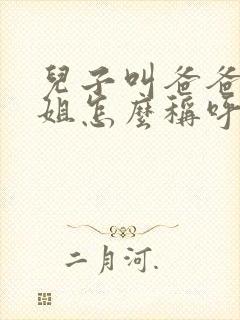 兒子叫爸爸
姐怎麼稱呼
二月河.